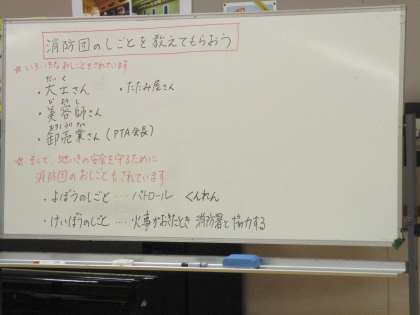 消防団のしごとを教えてもらおう
☆いろいろなおしごとをされています
・大工さん ・たたみ屋さん
だいく
・美容師さん
びようし
・卸売業さん(PTA会長)
☆そして、地いきの安全を守るために
消防団のおしごともされています
・よぼうのしごと……パトロール くんれん
・けいぼうのしごと……火事がおきたとき 消防署と協力する